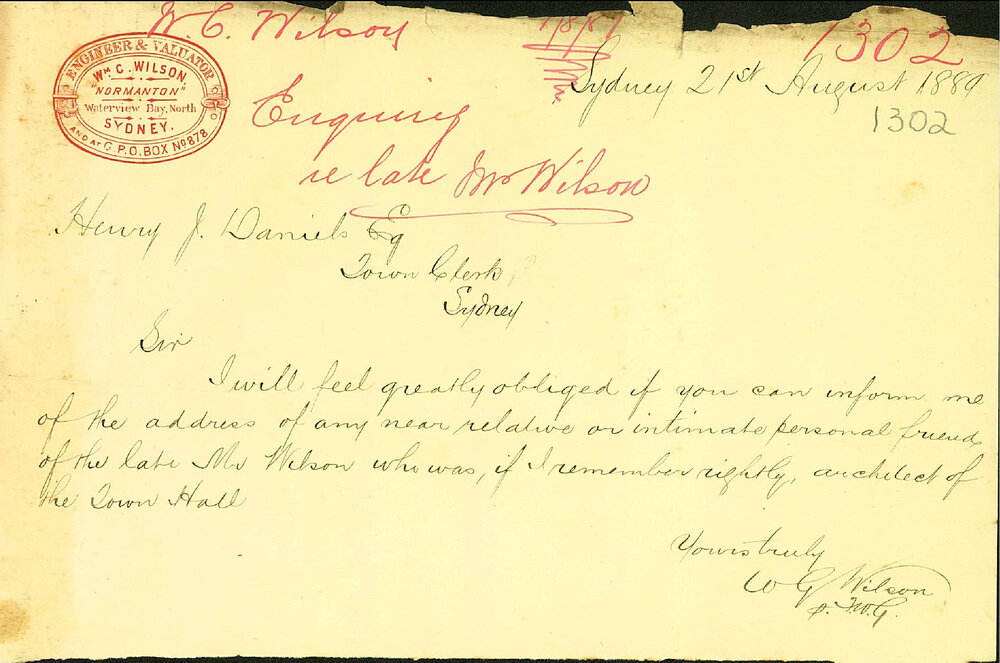 W. C. Wilson
1302
ENGINEER & VALUATOR
Wm G. WILSON
"NORMANTON"
Waterview Bay, North
SYDNEY.
AND AT G.P.O. BOX No 878
Sydney 21st August 1889
1302
Enquiry
re late Mr Wilson
Henry J. Daniels Eq
Town Clerk
Sydney
Sir
I will feel greatly obliged if you can inform me
of the address of any near relative or intimate personal friend,
of the late Mr Wilson who was, if I remember rightly, architect of
the Town Hall
Yours truly
W G Wilson